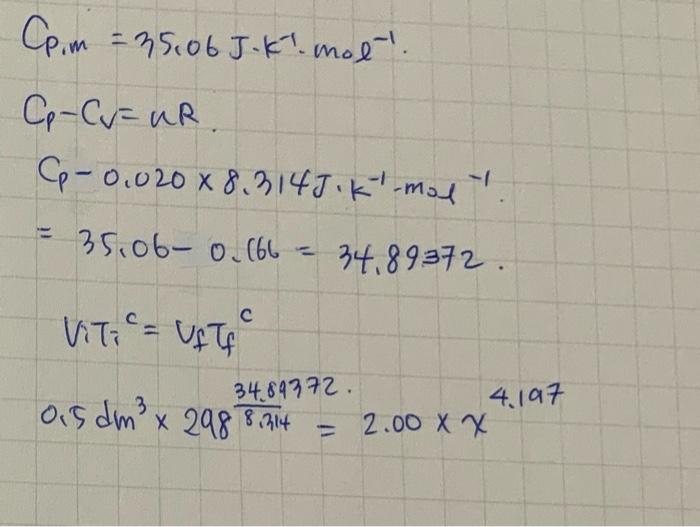 Cp,m = 35.06 J·K⁻¹·mol⁻¹.
Cp-Cv=nR.
Cp-0.020 × 8.314J·K⁻¹-mol⁻¹.
= 35.06- 0.166 = 34.89372.
ViTi^c = VfTf^c
0.5 dm³ × 298^(34.89372./8.314) = 2.00 × x^4.197